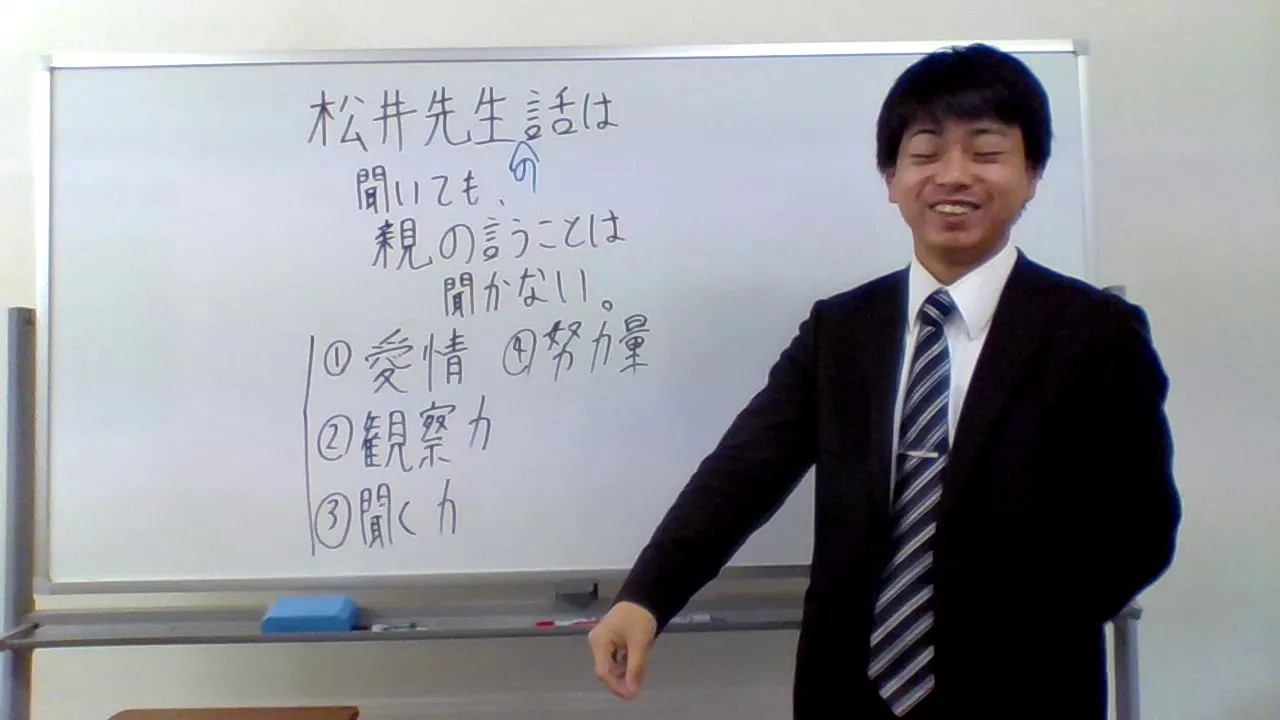 松井先生の話は
聞いても、
親の言うことは
聞かない。
①愛情 ④努力量
②観察力
③聞く力